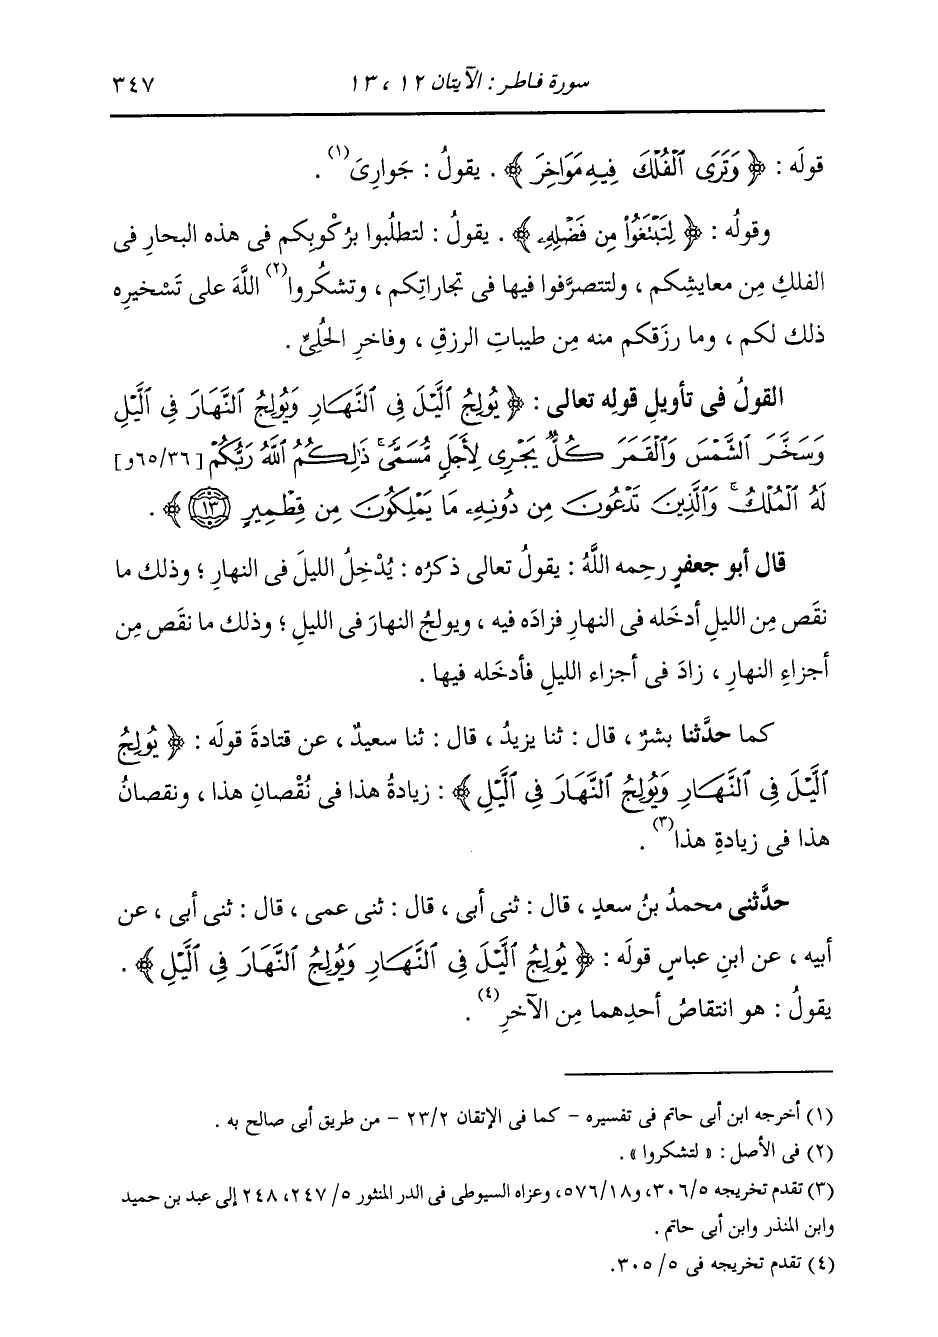 سورة فاطر : الآيتان ١٢ ، ١٣
٣٤٧
قولَه : ﴿ وَتَرَى ٱلْفُلْكَ فِيهِ مَوَاخِرَ ﴾ . يقولُ : جَوارِىَ(١) .
وقولُه : ﴿ لِتَبْتَغُوا۟ مِن فَضْلِهِۦ ﴾ . يقولُ : لتطلُبوا برُكْوبِكم فى هذه البحارِ فى
الفلكِ مِن معايشِكم ، ولتتصرَّفوا فيها فى تجاراتِكم ، وتشكُروا(٢) اللَّهَ على تَسْخيرِه
ذلك لكم ، وما رزَقكم منه مِن طيباتِ الرزقِ ، وفاخرِ الحُلِىِّ .
القولُ فى تأويلِ قولِه تعالى : ﴿ يُولِجُ ٱلَّيْلَ فِى ٱلنَّهَارِ وَيُولِجُ ٱلنَّهَارَ فِى ٱلَّيْلِ
وَسَخَّرَ ٱلشَّمْسَ وَٱلْقَمَرَ كُلٌّ يَجْرِى لِأَجَلٍ مُّسَمًّى ۚ ذَٰلِكُمُ ٱللَّهُ رَبُّكُمْ [٦٥/٣٦و]
لَهُ ٱلْمُلْكُ ۚ وَٱلَّذِينَ تَدْعُونَ مِن دُونِهِۦ مَا يَمْلِكُونَ مِن قِطْمِيرٍ ﴿١٣﴾ ﴾ .
قال أبو جعفرٍ رحِمه اللَّهُ : يقولُ تعالى ذكرُه : يُدْخِلُ الليلَ فى النهارِ ؛ وذلك ما
نقَص مِن الليلِ أدخَله فى النهارِ فزادَه فيه ، ويولجُ النهارَ فى الليلِ ؛ وذلك ما نقَص مِن
أجزاءِ النهارِ ، زادَ فى أجزاء الليلِ فأدخَله فيها .
كما حدَّثنا بشرٌ ، قال : ثنا يزيدُ ، قال : ثنا سعيدٌ ، عن قتادةَ قولَه : ﴿ يُولِجُ
ٱلَّيْلَ فِى ٱلنَّهَارِ وَيُولِجُ ٱلنَّهَارَ فِى ٱلَّيْلِ ﴾ : زيادةُ هذا فى نُقْصانِ هذا ، ونقصانُ
هذا فى زيادةِ هذا(٣) .
حدَّثنى محمدُ بنُ سعدٍ ، قال : ثنى أبى ، قال : ثنى عمى ، قال : ثنى أبى ، عن
أبيه ، عن ابنِ عباسٍ قولَه : ﴿ يُولِجُ ٱلَّيْلَ فِى ٱلنَّهَارِ وَيُولِجُ ٱلنَّهَارَ فِى ٱلَّيْلِ ﴾ .
يقولُ : هو انتقاصُ أحدِهما مِن الآخرِ(٤) .
(١) أخرجه ابن أبى حاتم فى تفسيره - كما فى الإتقان ٢٣/٢ - من طريق أبى صالح به .
(٢) فى الأصل : « لتشكروا » .
(٣) تقدم تخريجه ٣٠٦/٥، و٥٧٦/١٨، وعزاه السيوطى فى الدر المنثور ٥/ ٢٤٧، ٢٤٨ إلى عبد بن حميد
وابن المنذر وابن أبى حاتم .
(٤) تقدم تخريجه فى ٥/ ٣٠٥.